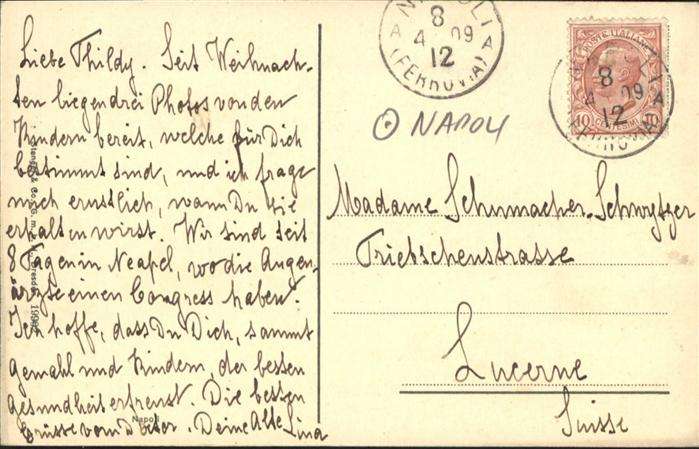 Liebe Thildy. Seit Weihnach-
ten liegen drei Photos von den
Kindern bereit, welche für Dich
bestimmt sind, und ich frage
mich ernstlich, wann Du sie
erhalten wirst. Wir sind seit
8 Tagen in Neapel, wo die Augen-
ärzte einen Congress haben.
Ich hoffe, dass Du Dich, sammt
Gemahl und Kindern, der besten
Gesundheit erfreust. Die besten
Grüsse vom Doctor. Deine Alte Lina
Napoli
NAPOLI
8
4 09
12
(FERROVIA)
NAPOLI
POSTE ITALIANE
10 10
8
4 09
12
Madame Schumacher-Schnyder
Triebschenstrasse
Lucerne
Suisse